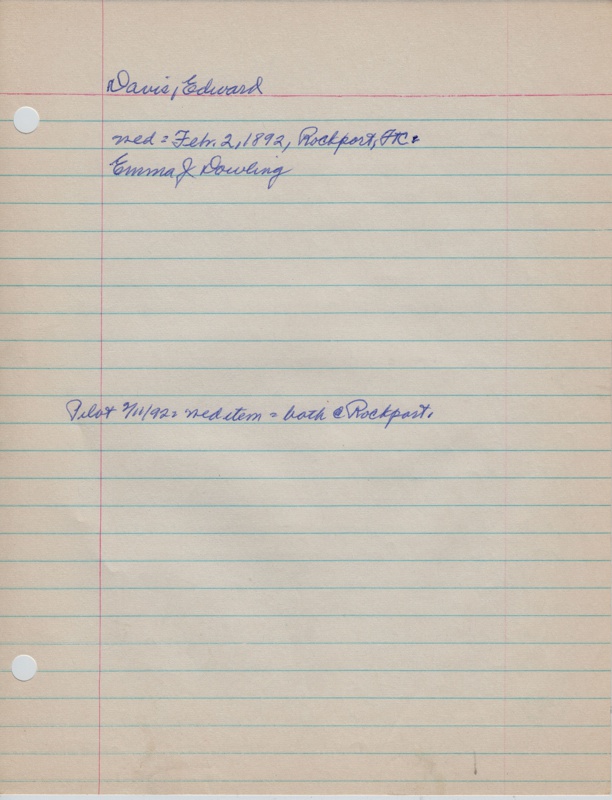 Davis, Edward
wed = Febr. 2, 1892, Rockport,
Emma J. Dowling
Pilot 2/11/92 = wed item = both @ Rockport.